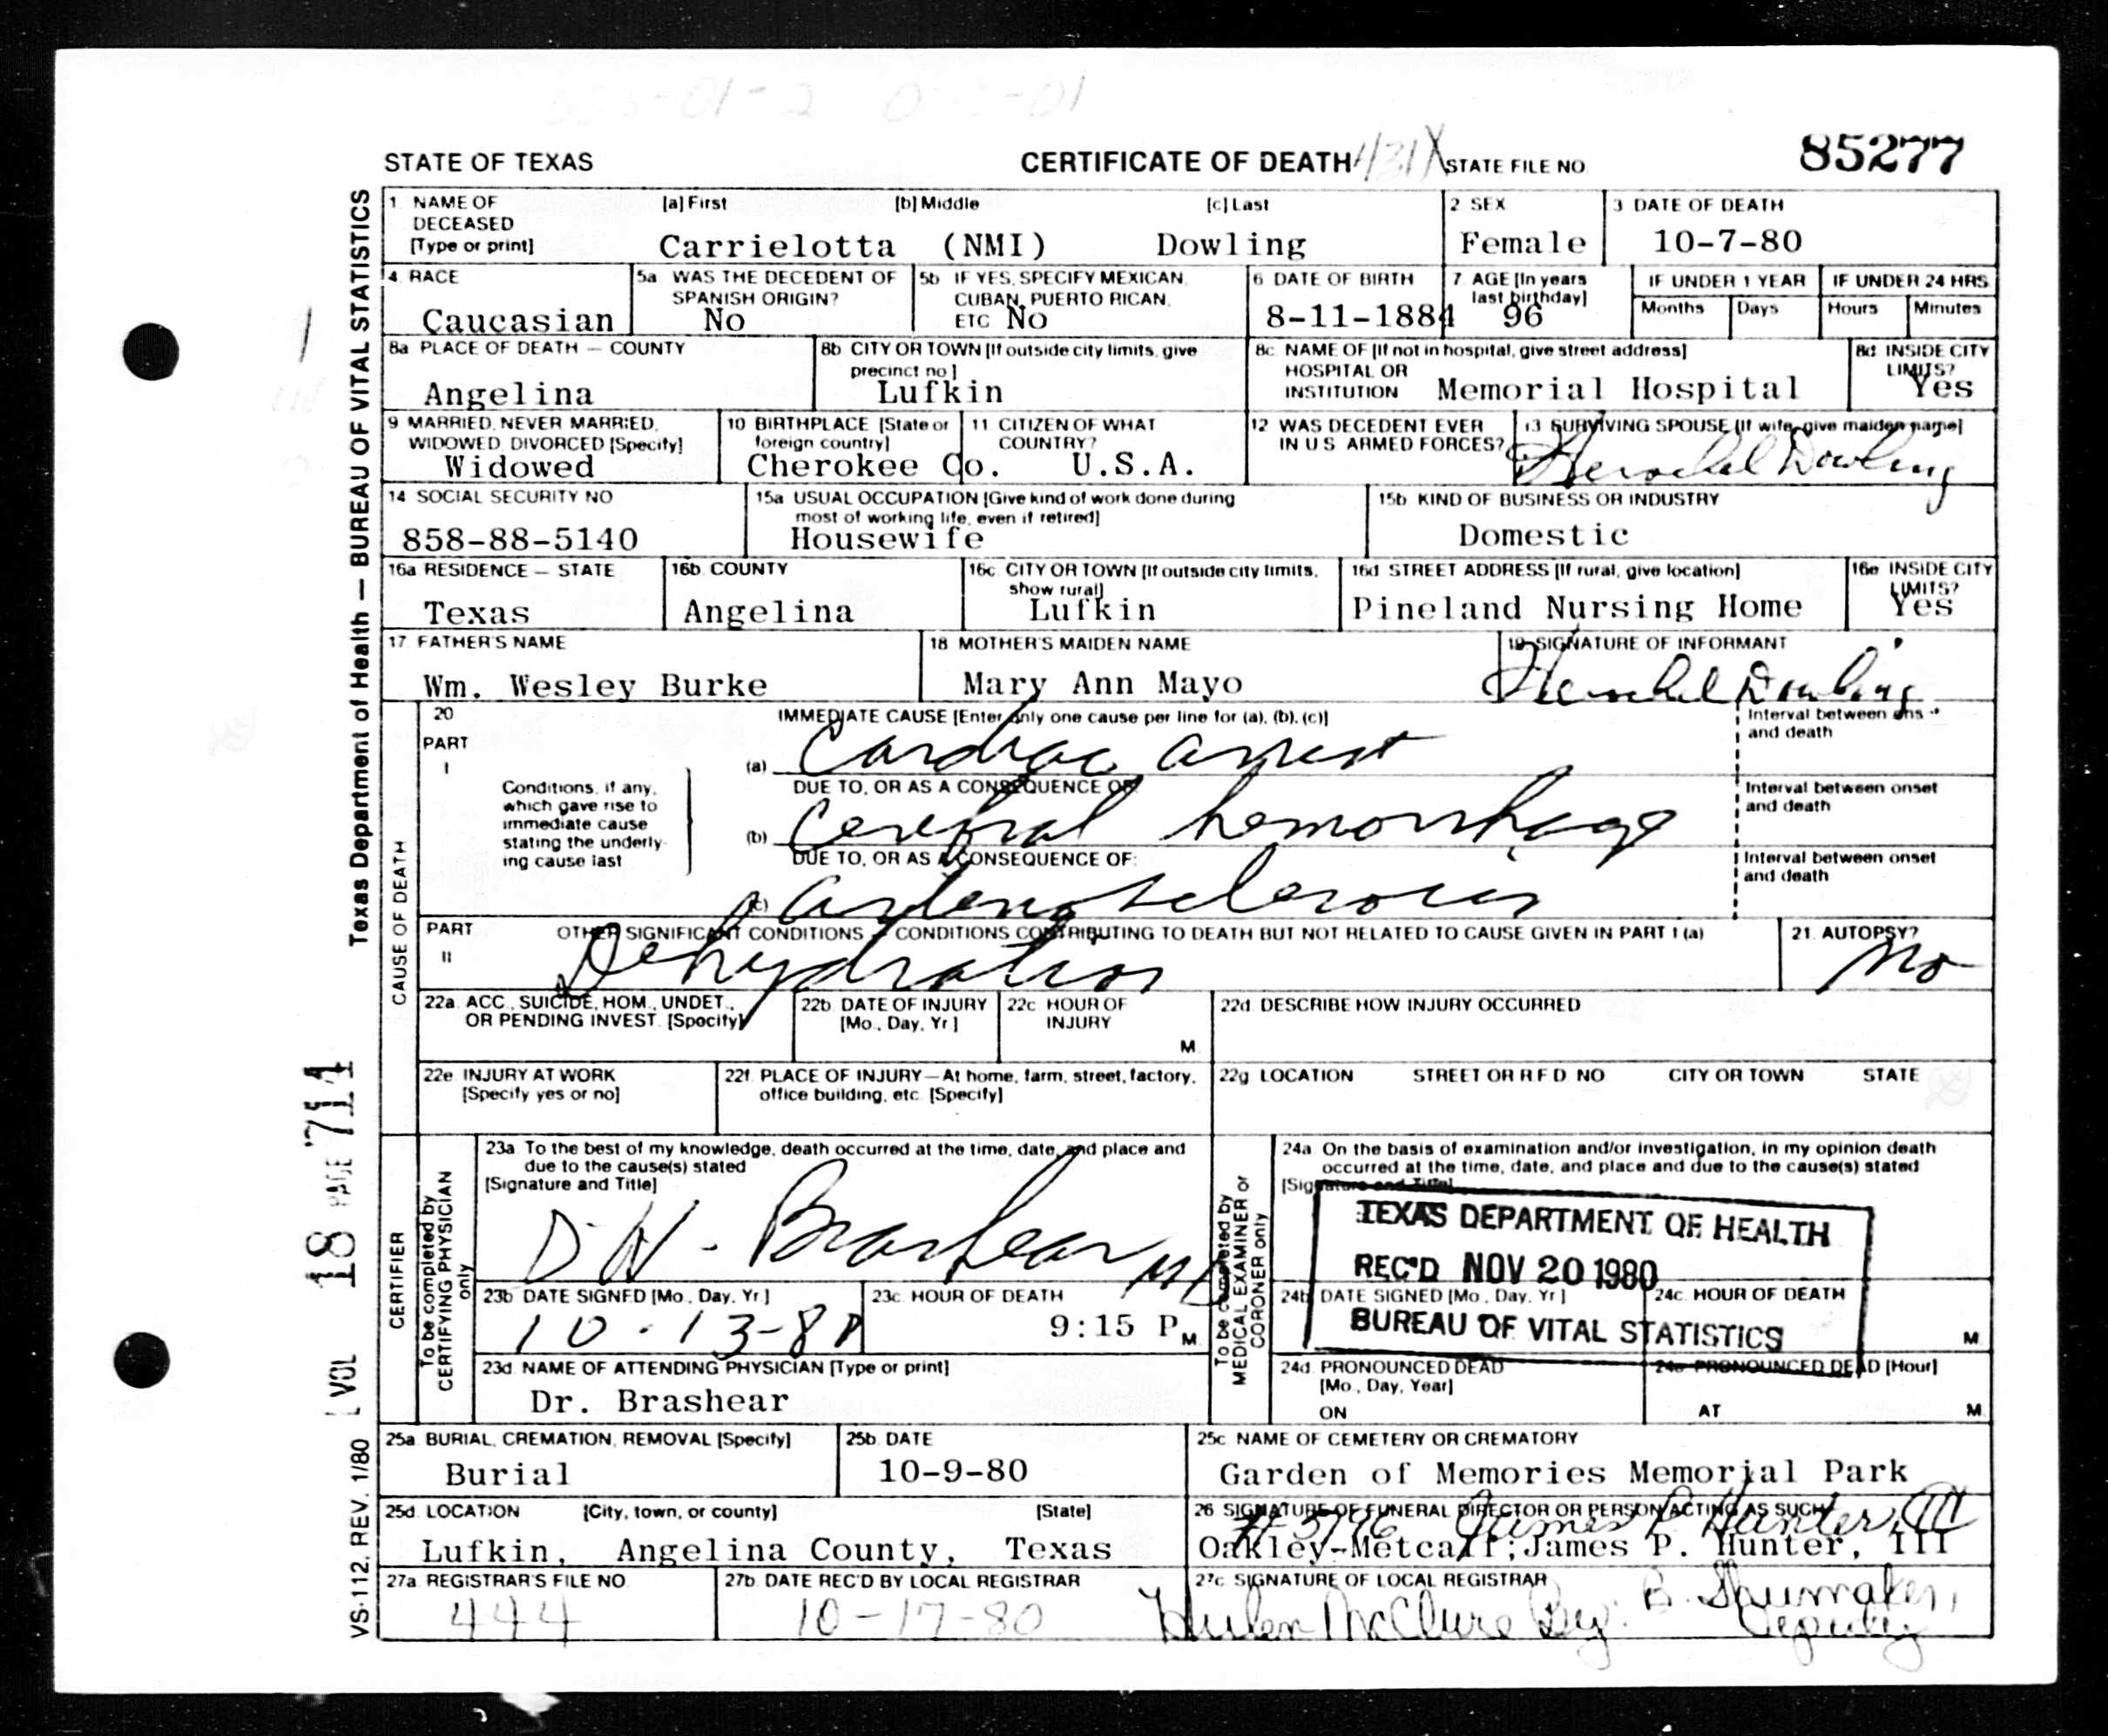 STATE OF TEXAS CERTIFICATE OF DEATH 431X STATE FILE NO. 85277
Texas Department of Health — BUREAU OF VITAL STATISTICS
1. NAME OF DECEASED [Type or print] [a] First [b] Middle [c] Last
Carrielotta (NMI) Dowling
2 SEX
Female
3 DATE OF DEATH
10-7-80
4. RACE
Caucasian
5a WAS THE DECEDENT OF SPANISH ORIGIN?
No
5b IF YES, SPECIFY MEXICAN, CUBAN, PUERTO RICAN, ETC
No
6 DATE OF BIRTH
8-11-1884
7. AGE [In years last birthday]
96
IF UNDER 1 YEAR
Months Days
IF UNDER 24 HRS
Hours Minutes
8a PLACE OF DEATH — COUNTY
Angelina
8b CITY OR TOWN [If outside city limits, give precinct no]
Lufkin
8c. NAME OF [If not in hospital, give street address] HOSPITAL OR INSTITUTION
Memorial Hospital
8d INSIDE CITY LIMITS?
Yes
9 MARRIED, NEVER MARRIED, WIDOWED, DIVORCED [Specify]
Widowed
10 BIRTHPLACE [State or foreign country]
Cherokee Co.
11 CITIZEN OF WHAT COUNTRY?
U.S.A.
12 WAS DECEDENT EVER IN U S ARMED FORCES?
13 SURVIVING SPOUSE [If wife, give maiden name]
Herschel Dowling
14 SOCIAL SECURITY NO
858-88-5140
15a USUAL OCCUPATION [Give kind of work done during most of working life, even if retired]
Housewife
15b KIND OF BUSINESS OR INDUSTRY
Domestic
16a RESIDENCE — STATE
Texas
16b COUNTY
Angelina
16c. CITY OR TOWN [If outside city limits, show rural]
Lufkin
16d STREET ADDRESS [If rural, give location]
Pineland Nursing Home
16e INSIDE CITY LIMITS?
Yes
17 FATHER'S NAME
Wm. Wesley Burke
18 MOTHER'S MAIDEN NAME
Mary Ann Mayo
19 SIGNATURE OF INFORMANT
Herschel Dowling
CAUSE OF DEATH
20
PART I
IMMEDIATE CAUSE [Enter only one cause per line for (a), (b), (c)]
(a) Cardiac arrest
Interval between ons and death
Conditions, if any, which gave rise to immediate cause stating the underlying cause last
DUE TO, OR AS A CONSEQUENCE OF:
(b) Cerebral hemorrhage
Interval between onset and death
DUE TO, OR AS A CONSEQUENCE OF:
(c) Arteriosclerosis
Interval between onset and death
PART II
OTHER SIGNIFICANT CONDITIONS — CONDITIONS CONTRIBUTING TO DEATH BUT NOT RELATED TO CAUSE GIVEN IN PART I (a)
Dehydration
21. AUTOPSY?
No
22a. ACC., SUICIDE, HOM., UNDET., OR PENDING INVEST. [Specify]
22b. DATE OF INJURY [Mo., Day, Yr.]
22c. HOUR OF INJURY
M
22d. DESCRIBE HOW INJURY OCCURRED
22e. INJURY AT WORK [Specify yes or no]
22f. PLACE OF INJURY — At home, farm, street, factory, office building, etc. [Specify]
22g LOCATION STREET OR R.F.D. NO CITY OR TOWN STATE
CERTIFIER
To be completed by CERTIFYING PHYSICIAN only
23a. To the best of my knowledge, death occurred at the time, date, and place and due to the cause(s) stated
[Signature and Title]
D H. Brashear MD
23b DATE SIGNED [Mo., Day, Yr.]
10-13-80
23c. HOUR OF DEATH
9:15 P M
23d. NAME OF ATTENDING PHYSICIAN [Type or print]
Dr. Brashear
To be completed by MEDICAL EXAMINER or CORONER only
24a On the basis of examination and/or investigation, in my opinion death occurred at the time, date, and place and due to the cause(s) stated
[Signature and Title]
TEXAS DEPARTMENT OF HEALTH
REC'D NOV 20 1980
BUREAU OF VITAL STATISTICS
24b DATE SIGNED [Mo., Day, Yr.]
24c. HOUR OF DEATH
M
24d. PRONOUNCED DEAD [Mo., Day, Year]
ON
24e PRONOUNCED DEAD [Hour]
AT M
25a. BURIAL, CREMATION, REMOVAL [Specify]
Burial
25b. DATE
10-9-80
25c. NAME OF CEMETERY OR CREMATORY
Garden of Memories Memorial Park
25d. LOCATION [City, town, or county] [State]
Lufkin, Angelina County, Texas
26 SIGNATURE OF FUNERAL DIRECTOR OR PERSON ACTING AS SUCH
# 5796 James P. Hunter, III
Oakley-Metcalf;James P. Hunter, III
27a. REGISTRAR'S FILE NO
444
27b. DATE REC'D BY LOCAL REGISTRAR
10-17-80
27c. SIGNATURE OF LOCAL REGISTRAR
Hulen McClure By: B. Shumaker, Deputy
VOL 18 PAGE 711
VS-112, REV. 1/80